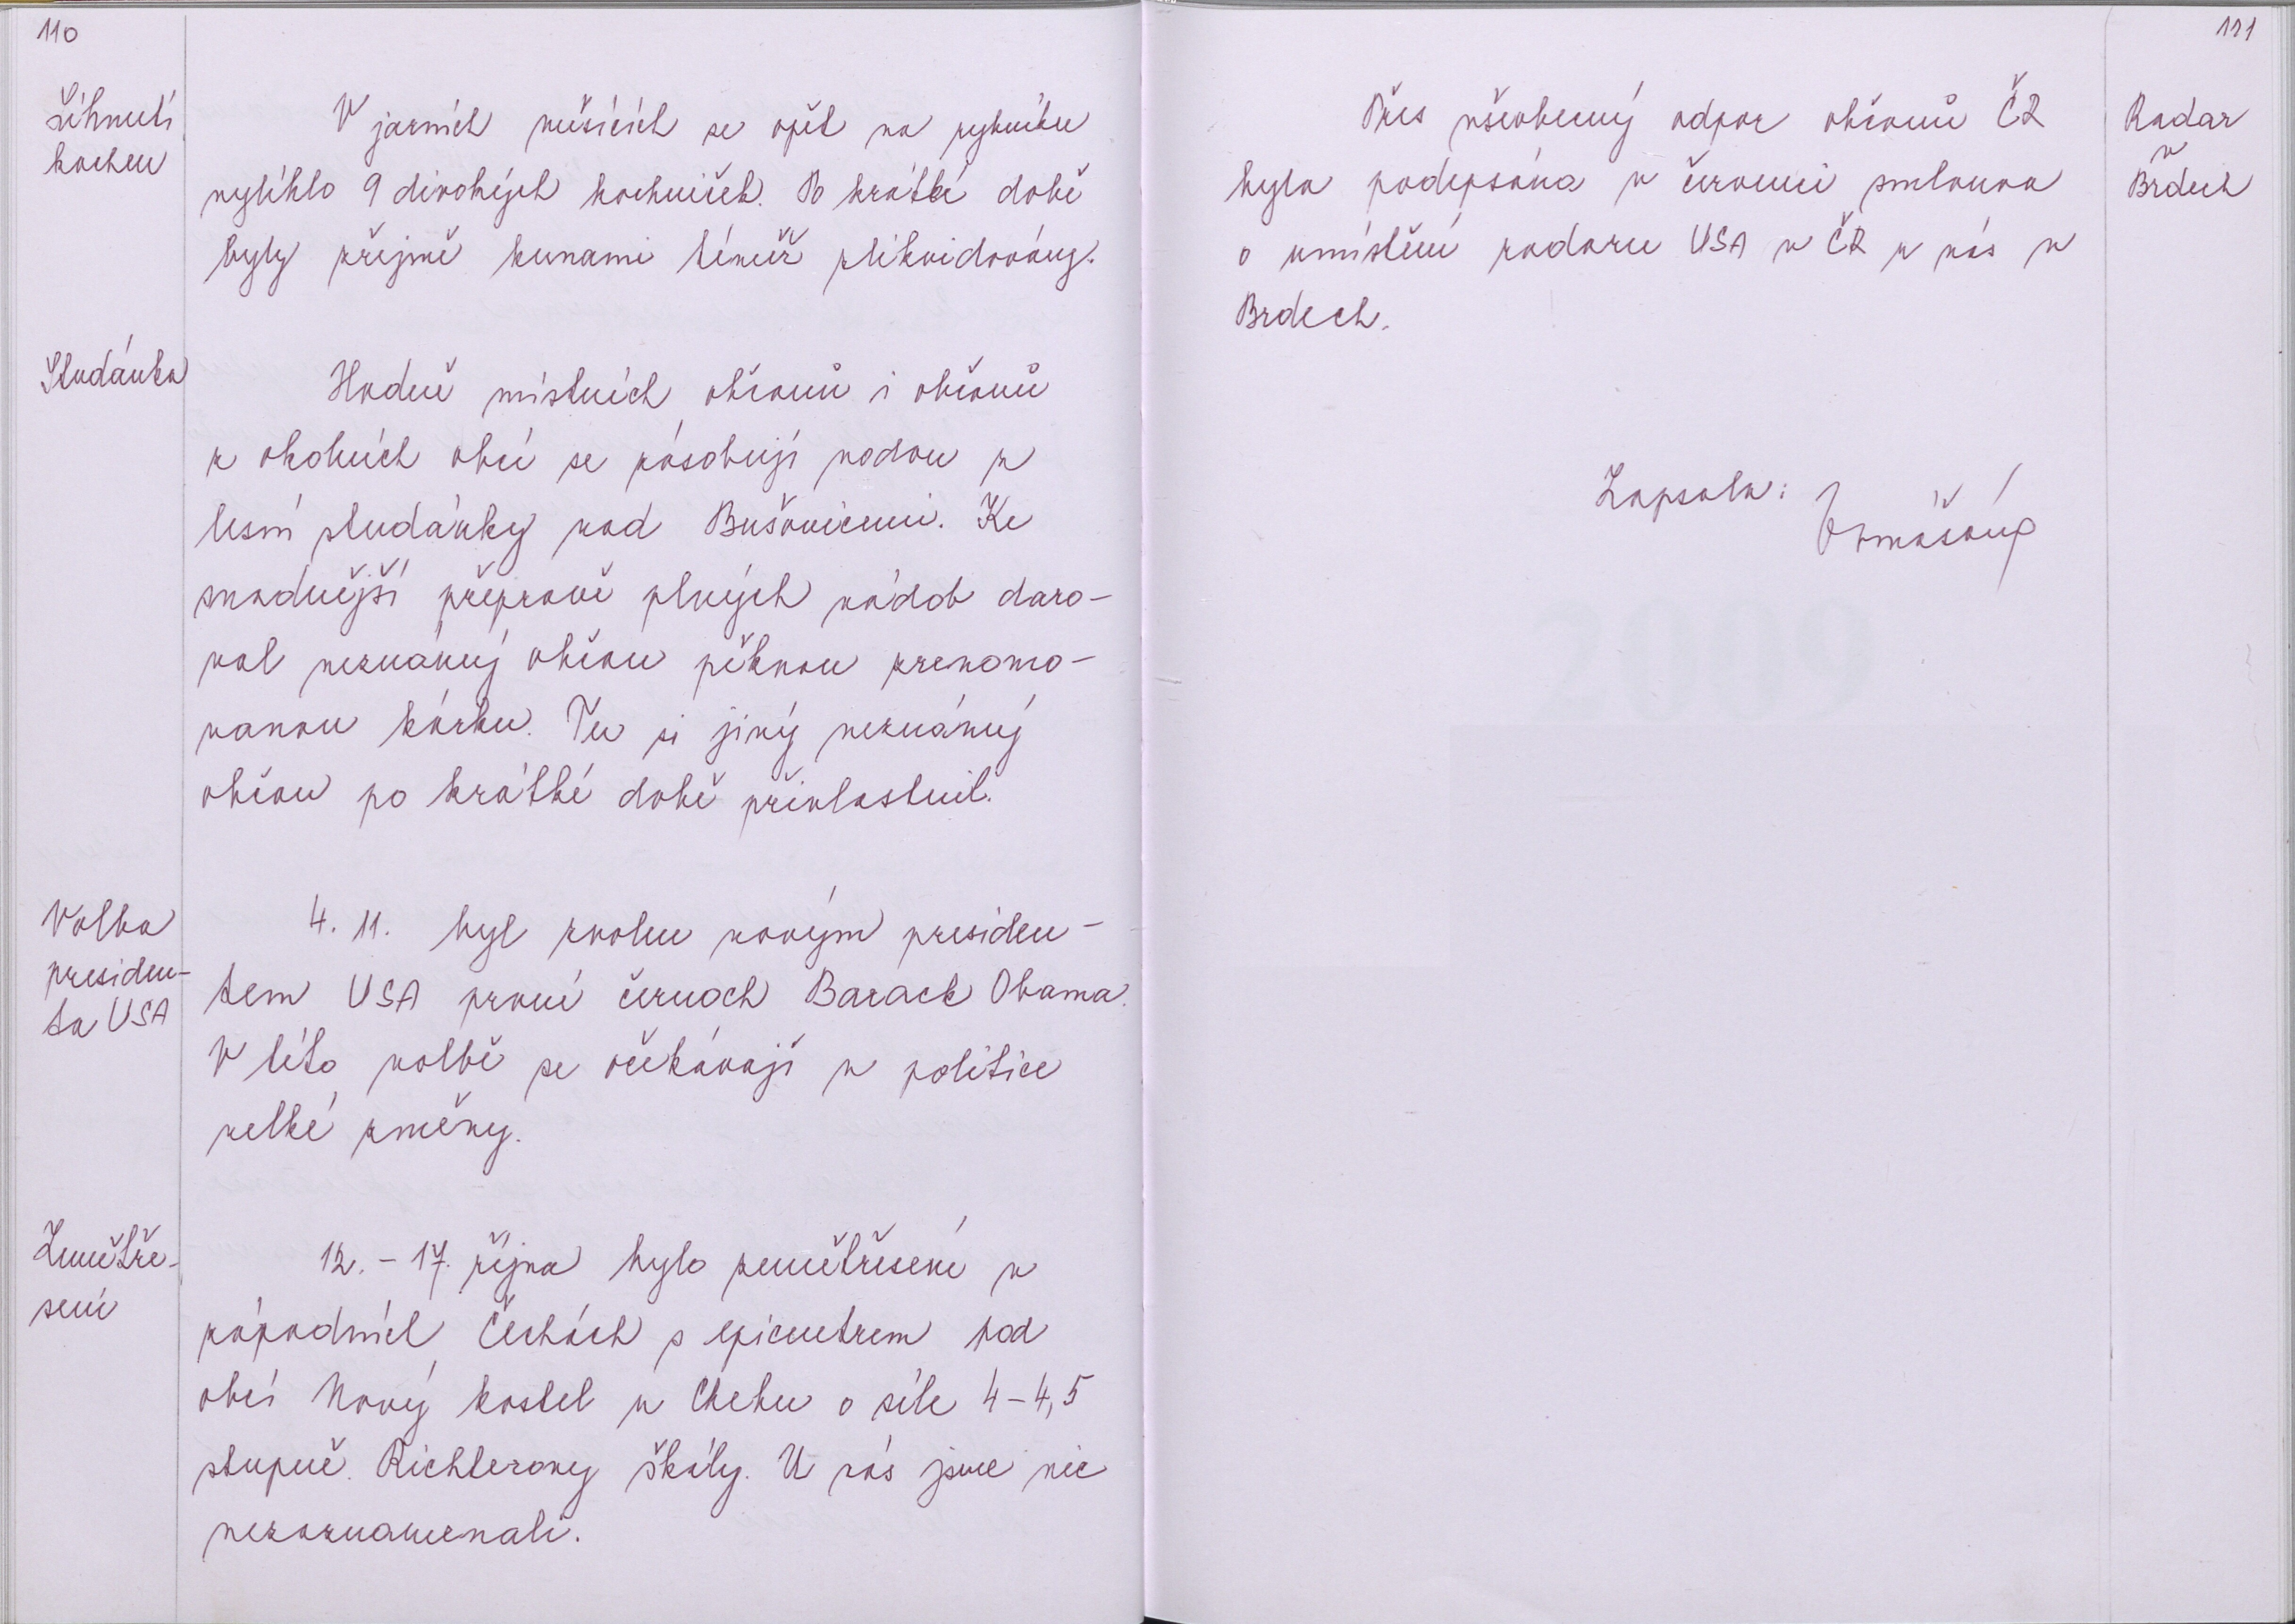 110
Líhnutí
kachen
V jarních měsících se opět na rybníku
vylíhlo 9 divokých kachniček. Po krátké době
byly zřejmě kunami téměř zlikvidovány.
Studánka
Hodně místních občanů i občanů
z okolních obcí se zásobují vodou z
lesní studánky nad Bušovicemi. Ke
snadnější přepravě plných nádob daro-
val neznámý občan pěknou zrenomo-
vanou kárku. Tu si jiný neznámý
občan po krátké době přivlastnil.
Volba
presiden-
ta USA
4. 11. byl zvolen novým presiden-
tem USA první černoch Barack Obama.
V této volbě se očekávají v politice
velké změny.
Zemětře-
sení
12. - 17. října bylo zemětřesení v
západních Čechách s epicentrem pod
obcí Nový kostel u Chebu o síle 4-4,5
stupně Richterovy škály. U nás jsme nic
nezaznamenali.
111
Radar
v
Brdech
Přes všeobecný odpor občanů ČR
byla podepsána v červenci smlouva
o umístění radaru USA v ČR u nás v
Brdech.
Zapsala:
2009